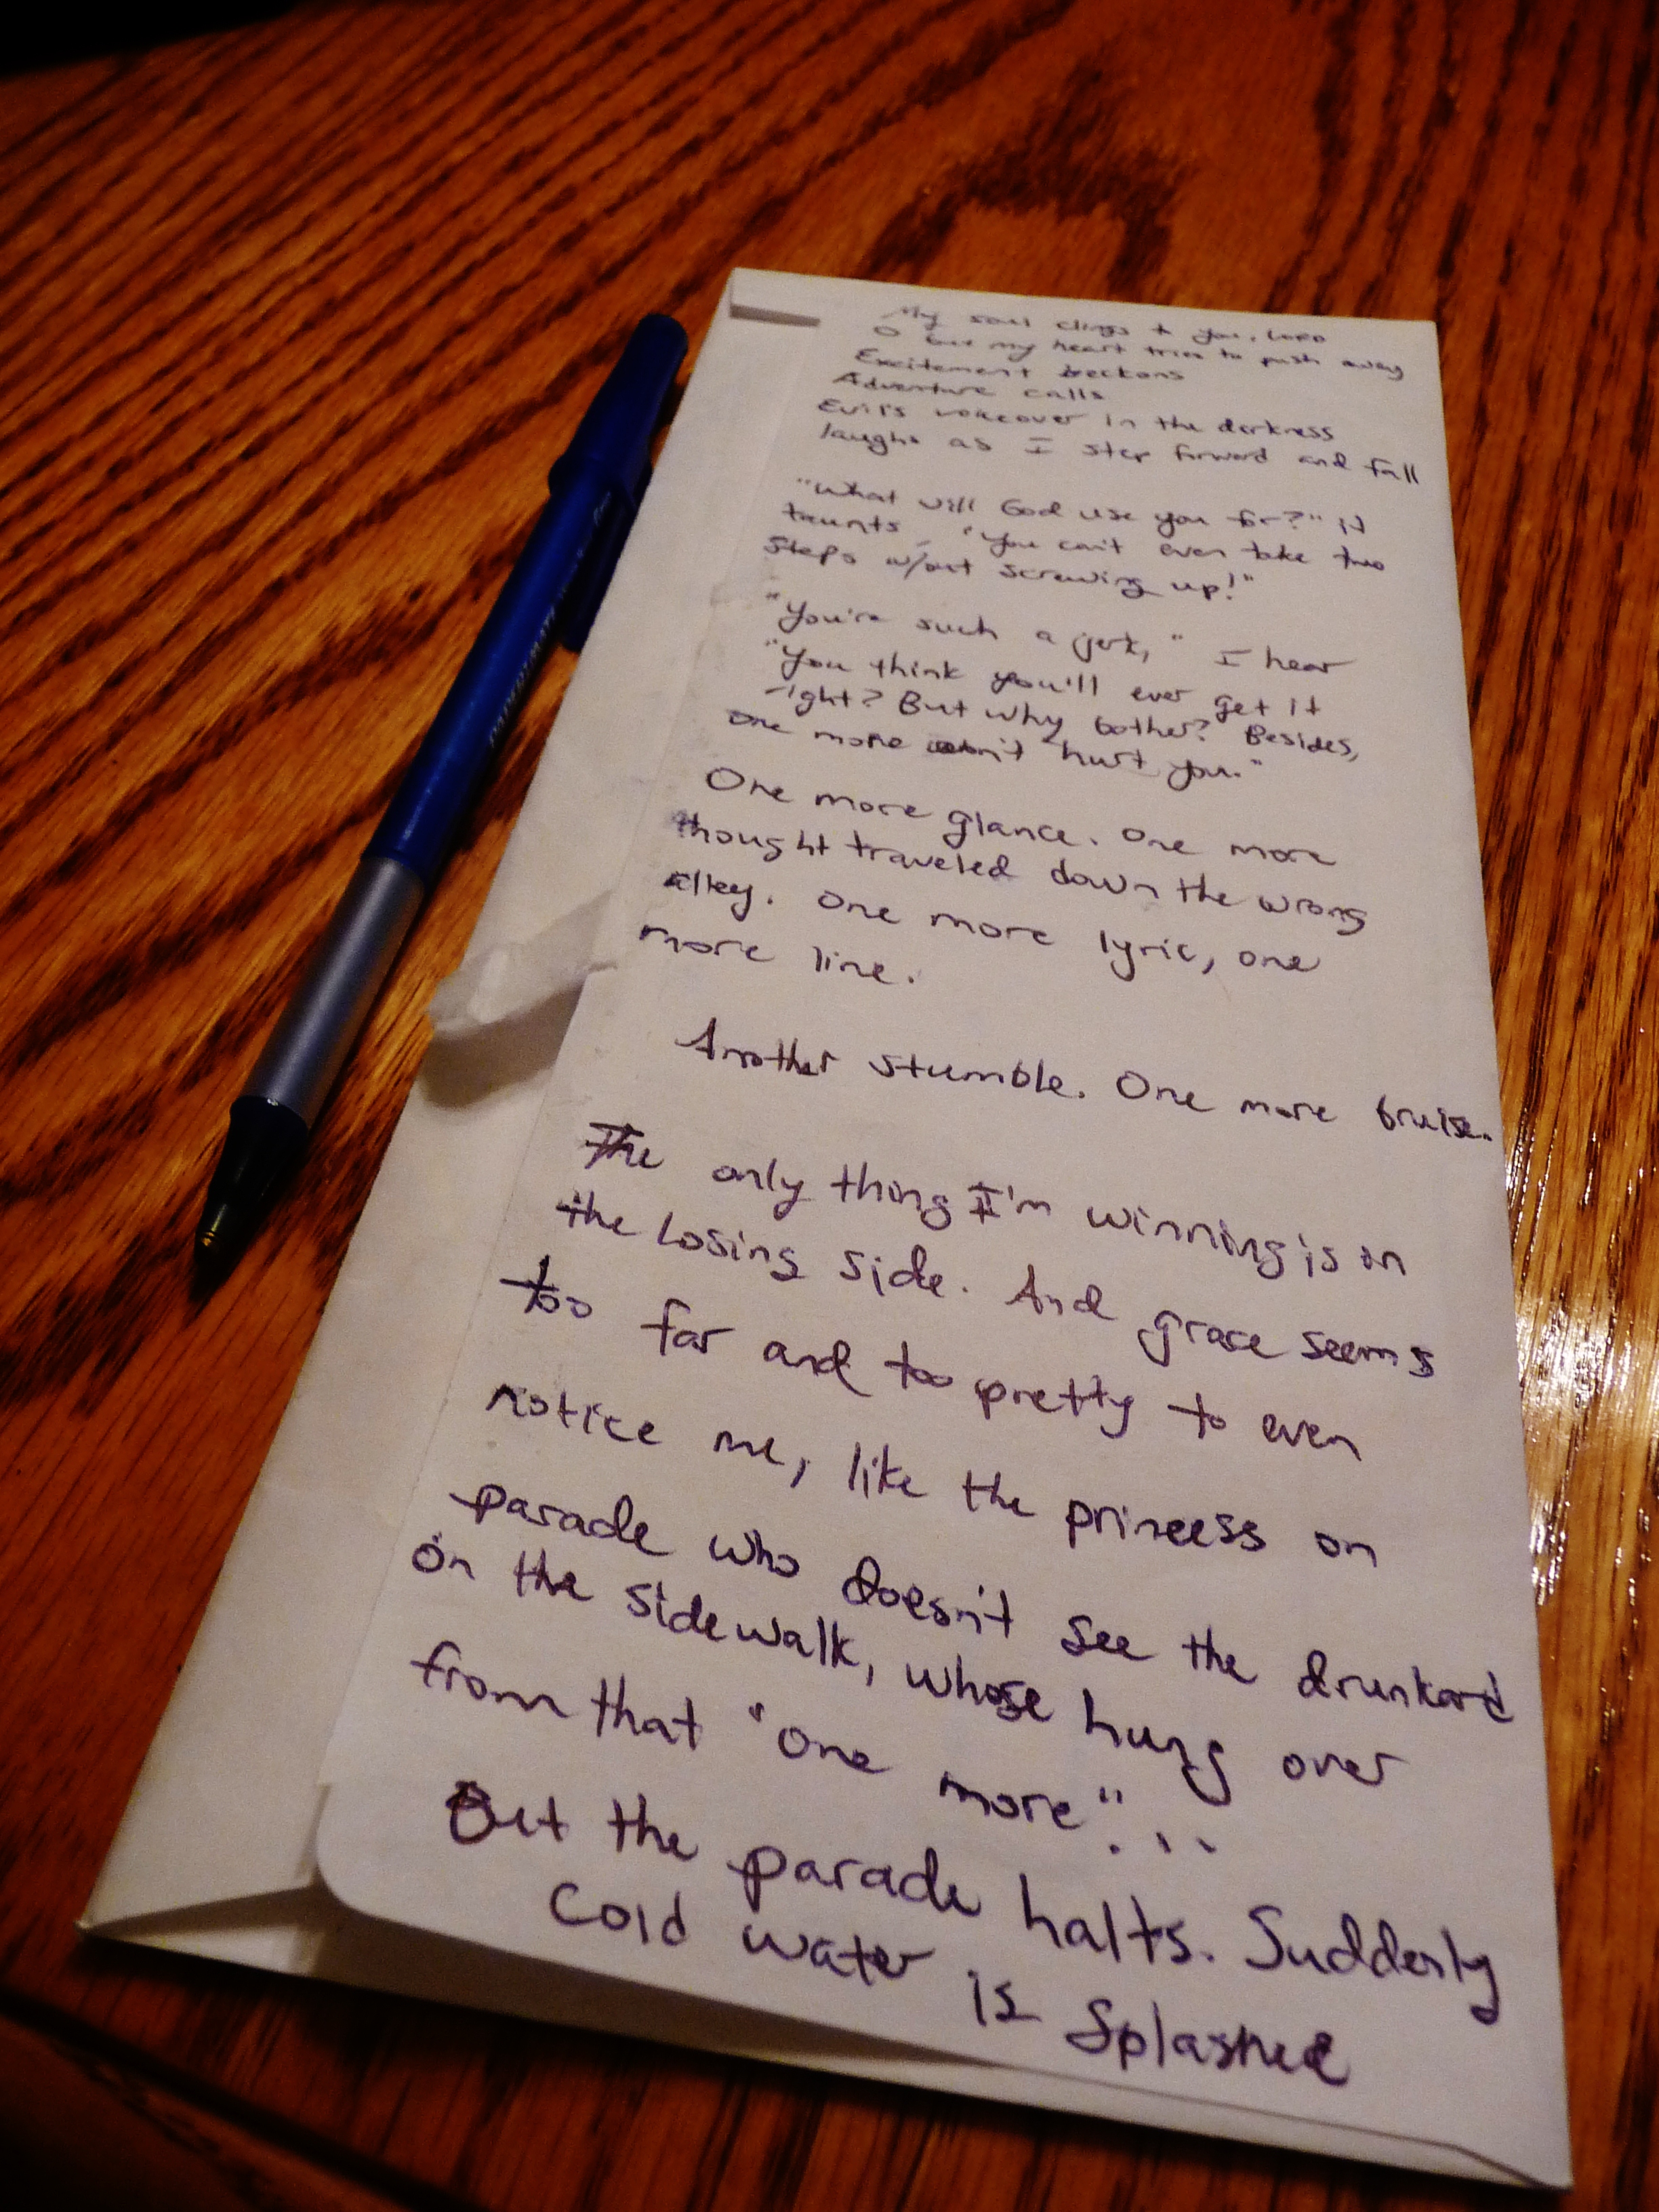 My soul clings to you, LORD
O but my heart tries to push away
Excitement beckons
Adventure calls
Evil's voiceover in the darkness
laughs as I step forward and fall
"What will God use you for?" it
taunts, "You can't even take two
steps w/out screwing up!"
"You're such a jerk," I hear
"You think you'll ever get it
right? But why bother? Besides,
one more won't hurt you."
One more glance. One more
thought traveled down the wrong
alley. One more lyric, one
more line.
Another stumble. One more bruise.
The only thing I'm winning is on
the losing side. And grace seems
too far and too pretty to even
notice me, like the princess on
parade who doesn't see the drunkard
on the sidewalk, whose hung over
from that "one more"...
But the parade halts. Suddenly
cold water is splashed